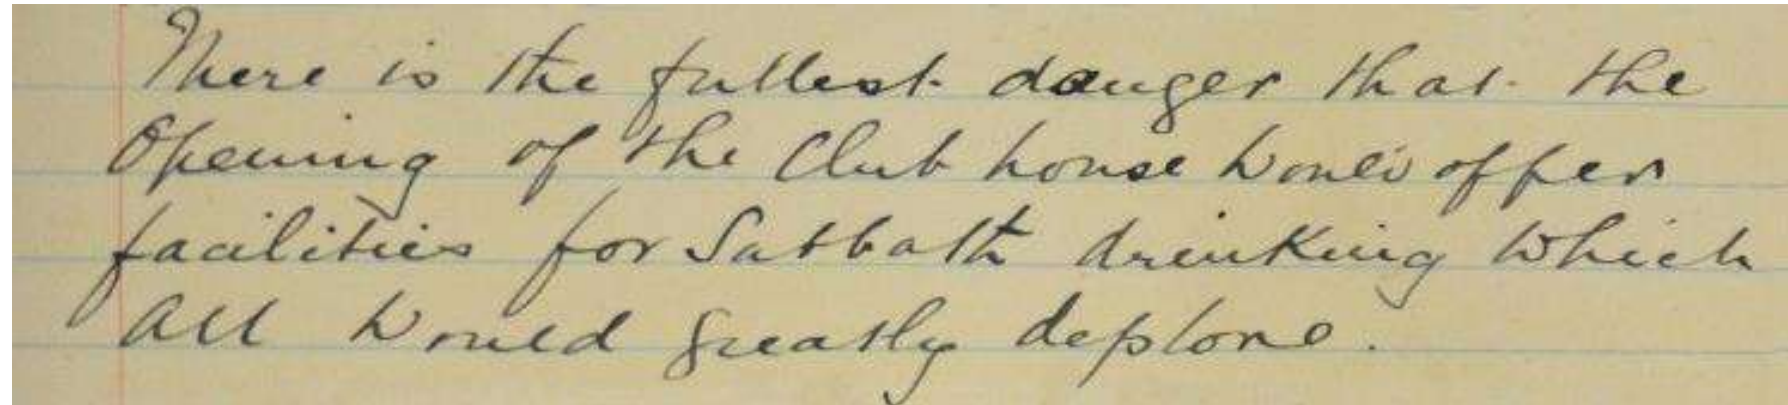 There is the fullest danger that the
Opening of the Club house would offer
facilities for Sabbath drinking which
all would greatly deplore.